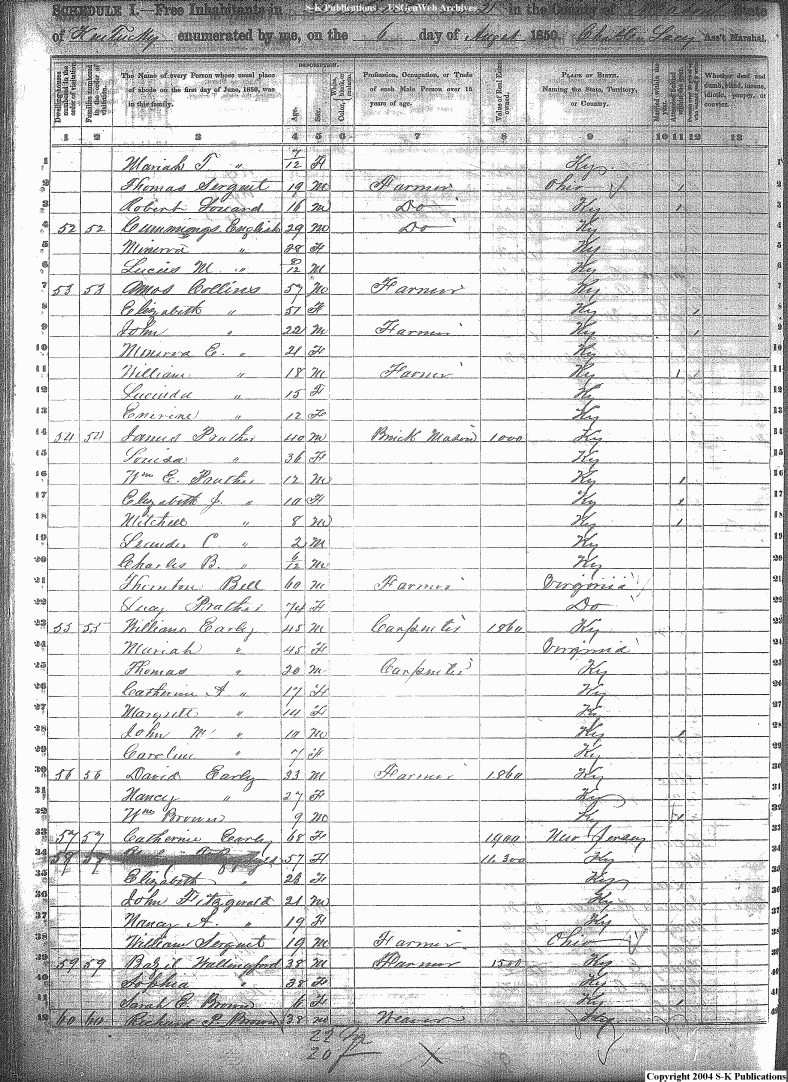 S-K Publications - USGenWeb Archives
SCHEDULE I.—Free Inhabitants in in the County of State
of Kentucky enumerated by me, on the 6 day of August 1850. Ass't Marshal.
DESCRIPTION.
Dwelling-houses numbered in the order of visitation. Families numbered in the order of visitation. The Name of every Person whose usual place of abode on the first day of June, 1850, was in this family. Age. Sex. White, black, or mulatto. Profession, Occupation, or Trade of each Male Person over 15 years of age. Value of Real Estate owned. PLACE OF BIRTH. Naming the State, Territory, or Country. Married within the year. Attended School within the year. Persons over 20 y'rs of age who cannot read & write. Whether deaf and dumb, blind, insane, idiotic, pauper, or convict.
1 2 3 4 5 6 7 8 9 10 11 12 13
1 Mariah T " 7/12 F Ky
2 Thomas Serguit 19 M Farmer Ohio 1
3 Robert 16 M Do Ky 1
4 52 52 Cummings English 29 M Do Ky
5 Minerva " 28 F Ky
6 Lucius M " 8/12 M Ky
7 53 53 Amos Collins 57 M Farmer Ky
8 Elizabeth " 51 F Ky 1
9 John " 22 M Farmer Ky 1
10 Minerva E. " 21 F Ky
11 William " 18 M Farmer Ky 1
12 Lucinda " 15 F Ky
13 " 12 F Ky
14 54 54 James Prather 40 M Brick Mason 1000 Ky
15 Louisa " 36 F Ky
16 Wm E. Prather 12 M Ky 1
17 Elizabeth J. " 10 F Ky 1
18 Mitchell " 8 M Ky 1
19 Leander C " 2 M Ky
20 Charles B. " 6/12 M Ky
21 Thornton Bell 60 M Farmer Virginia
22 Lucy Prather 74 F Do
23 55 55 William Earley 45 M Carpenter 1860 Ky
24 Mariah " 45 F Virginia
25 Thomas " 20 M Carpenter Ky
26 Catherine A " 17 F Ky
27 Margrett " 14 F Ky
28 John M " 10 M Ky 1
29 Caroline " 7 F Ky
30 56 56 David Earley 33 M Farmer 1860 Ky
31 Nancy " 27 F Ky
32 Wm Brown 9 M Ky 1
33 57 57 Catherine Earley 68 F 1900 New Jersey
34 57 F 11,300 Ky
35 Elizabeth " 23 F Ky
36 John Fitzgerald 21 M Ky
37 Nancy A " 19 F Ky
38 William Serguit 19 M Farmer Ohio
39 59 59 Bazil Wallingford 38 M Farmer 1500 Ky
40 Sophia " 28 F Ky
41 Sarah E Brown 6 F Ky 1
42 60 60 Richard P. Brown 38 M Weaver Ky
22
20 X
Copyright 2004 S-K Publications